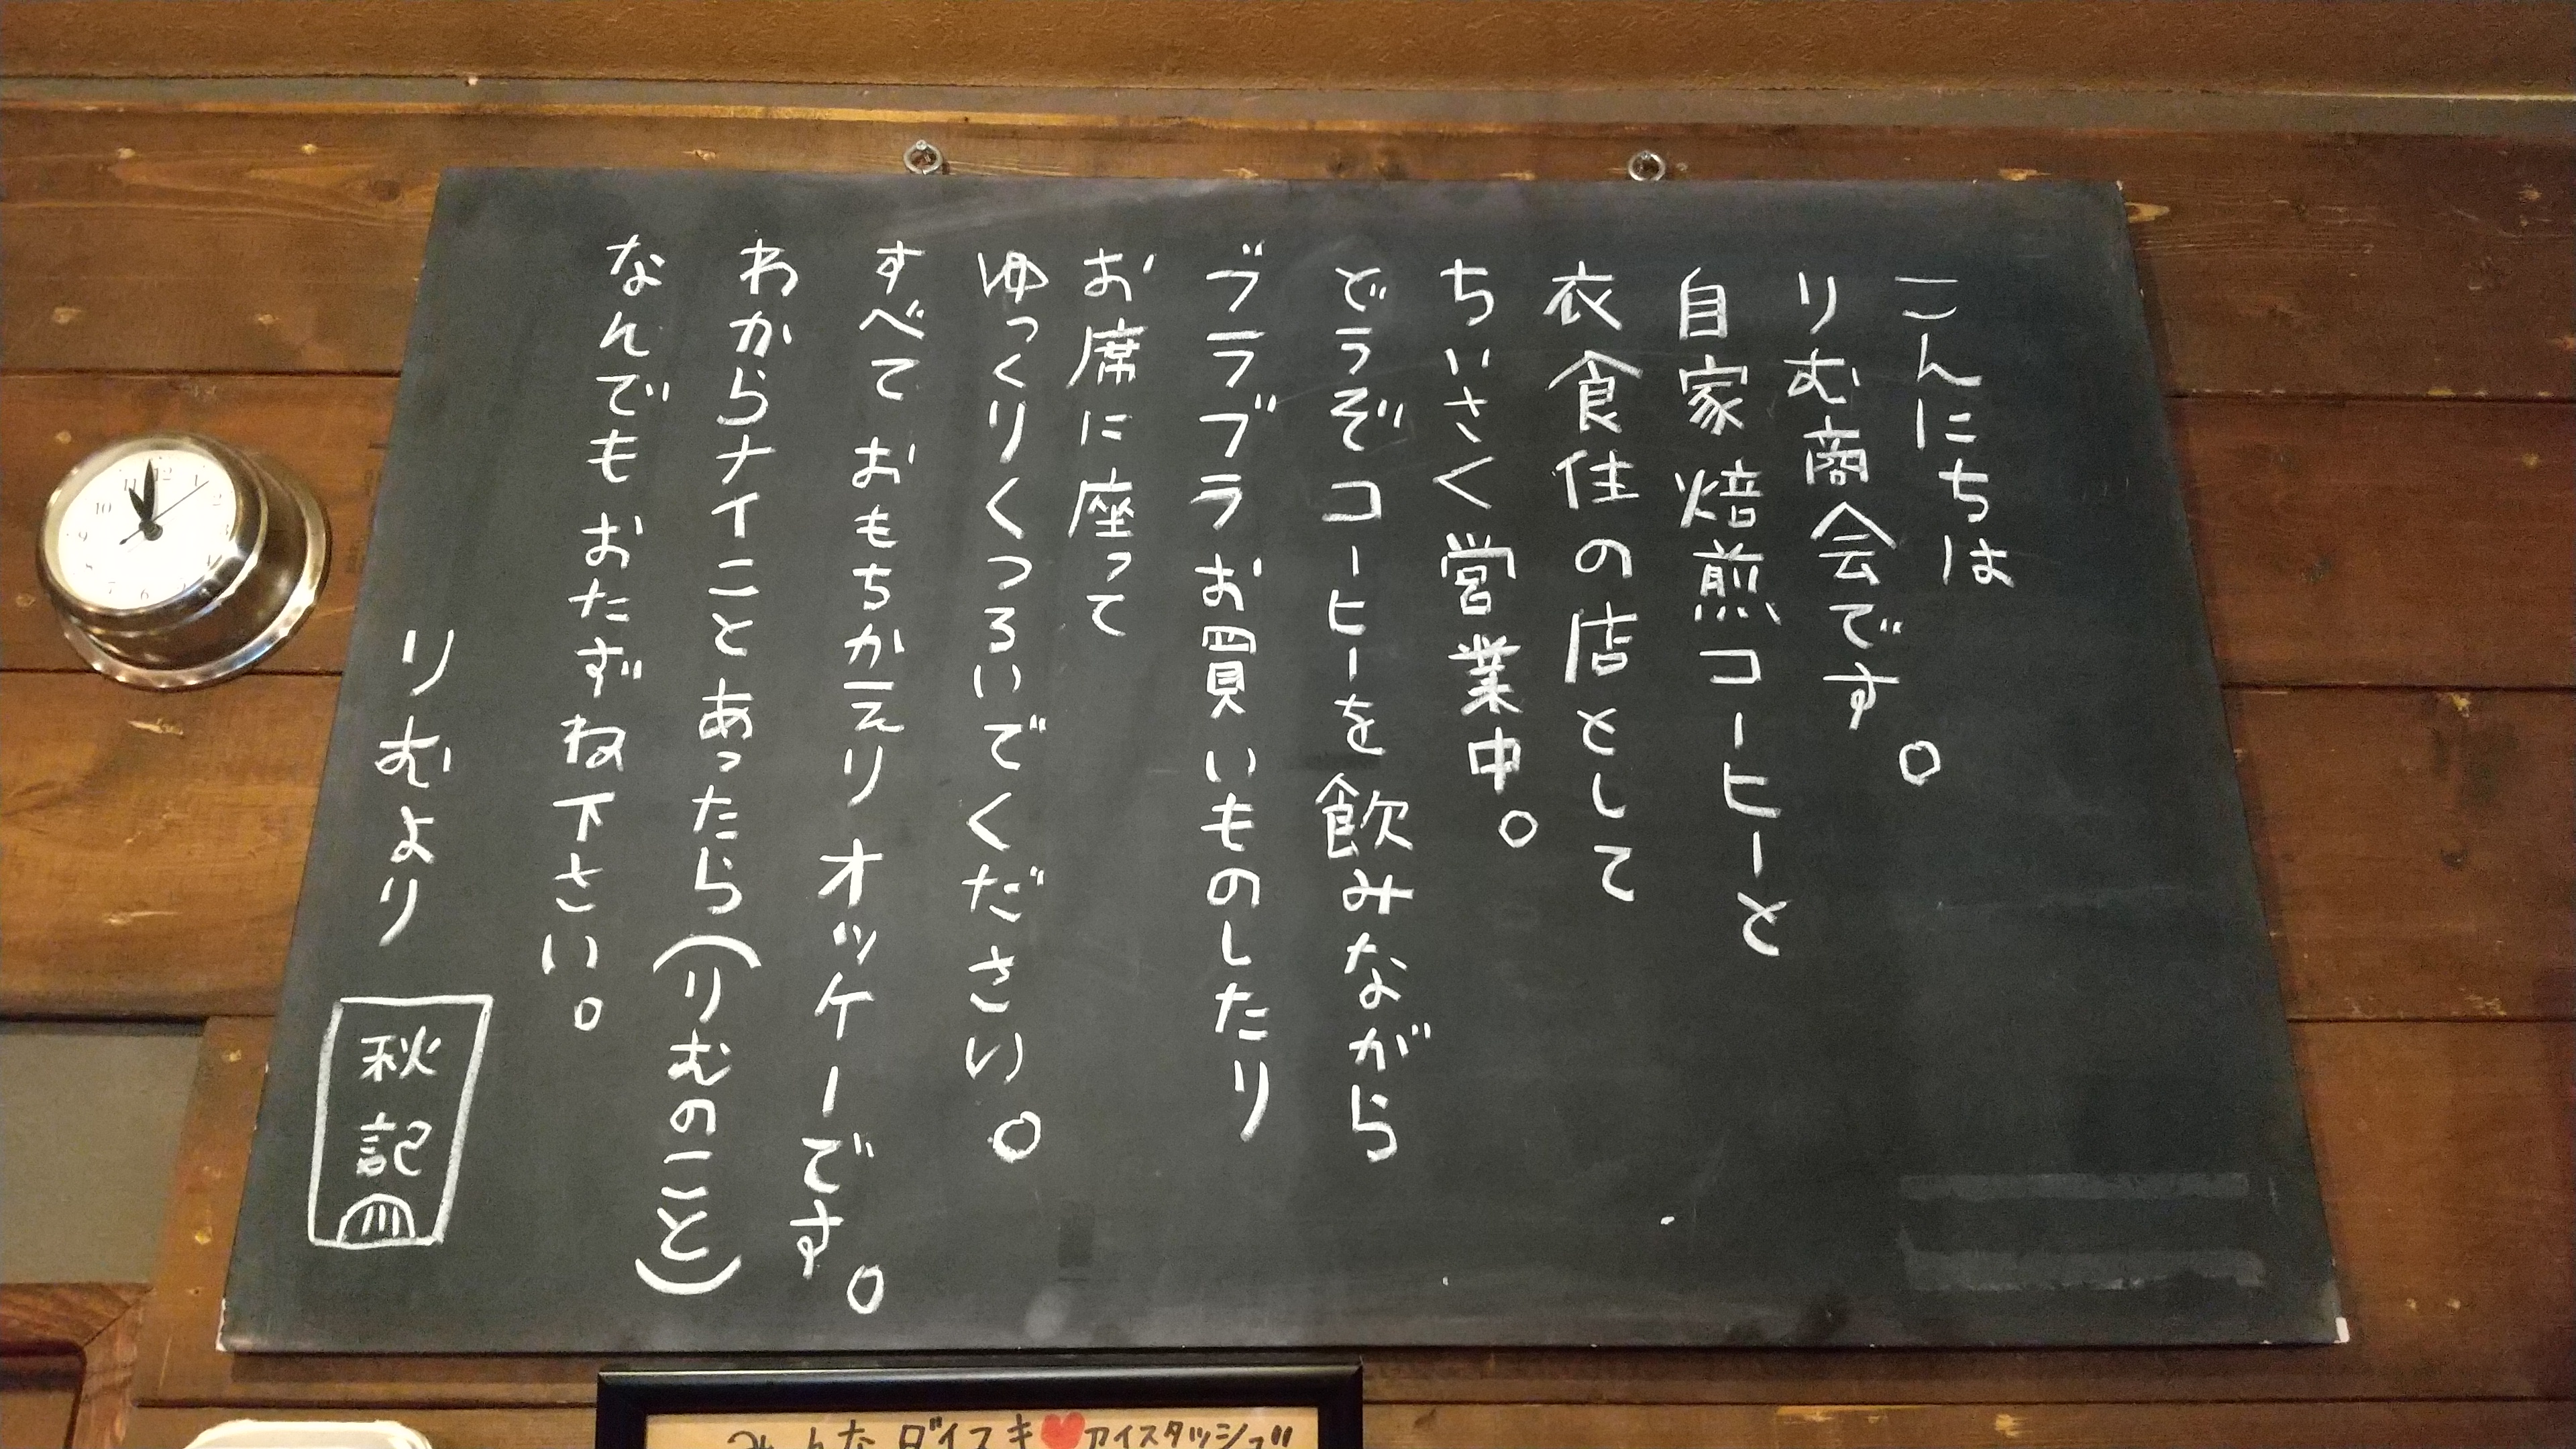 こんにちは
りむ商会です。
自家焙煎コーヒーと
衣食住の店として
ちいさく営業中。
どうぞコーヒーを飲みながら
ブラブラお買いものしたり
お席に座って
ゆっくりくつろいでください。
すべて おもちかえり オッケーです。
わからナイこと あったら(りむのこと)
なんでも おたずね下さい。
りむより
秋記
12
1
2
3
6
8
9
10
11
みんなダイスキ❤アイスタッシブ